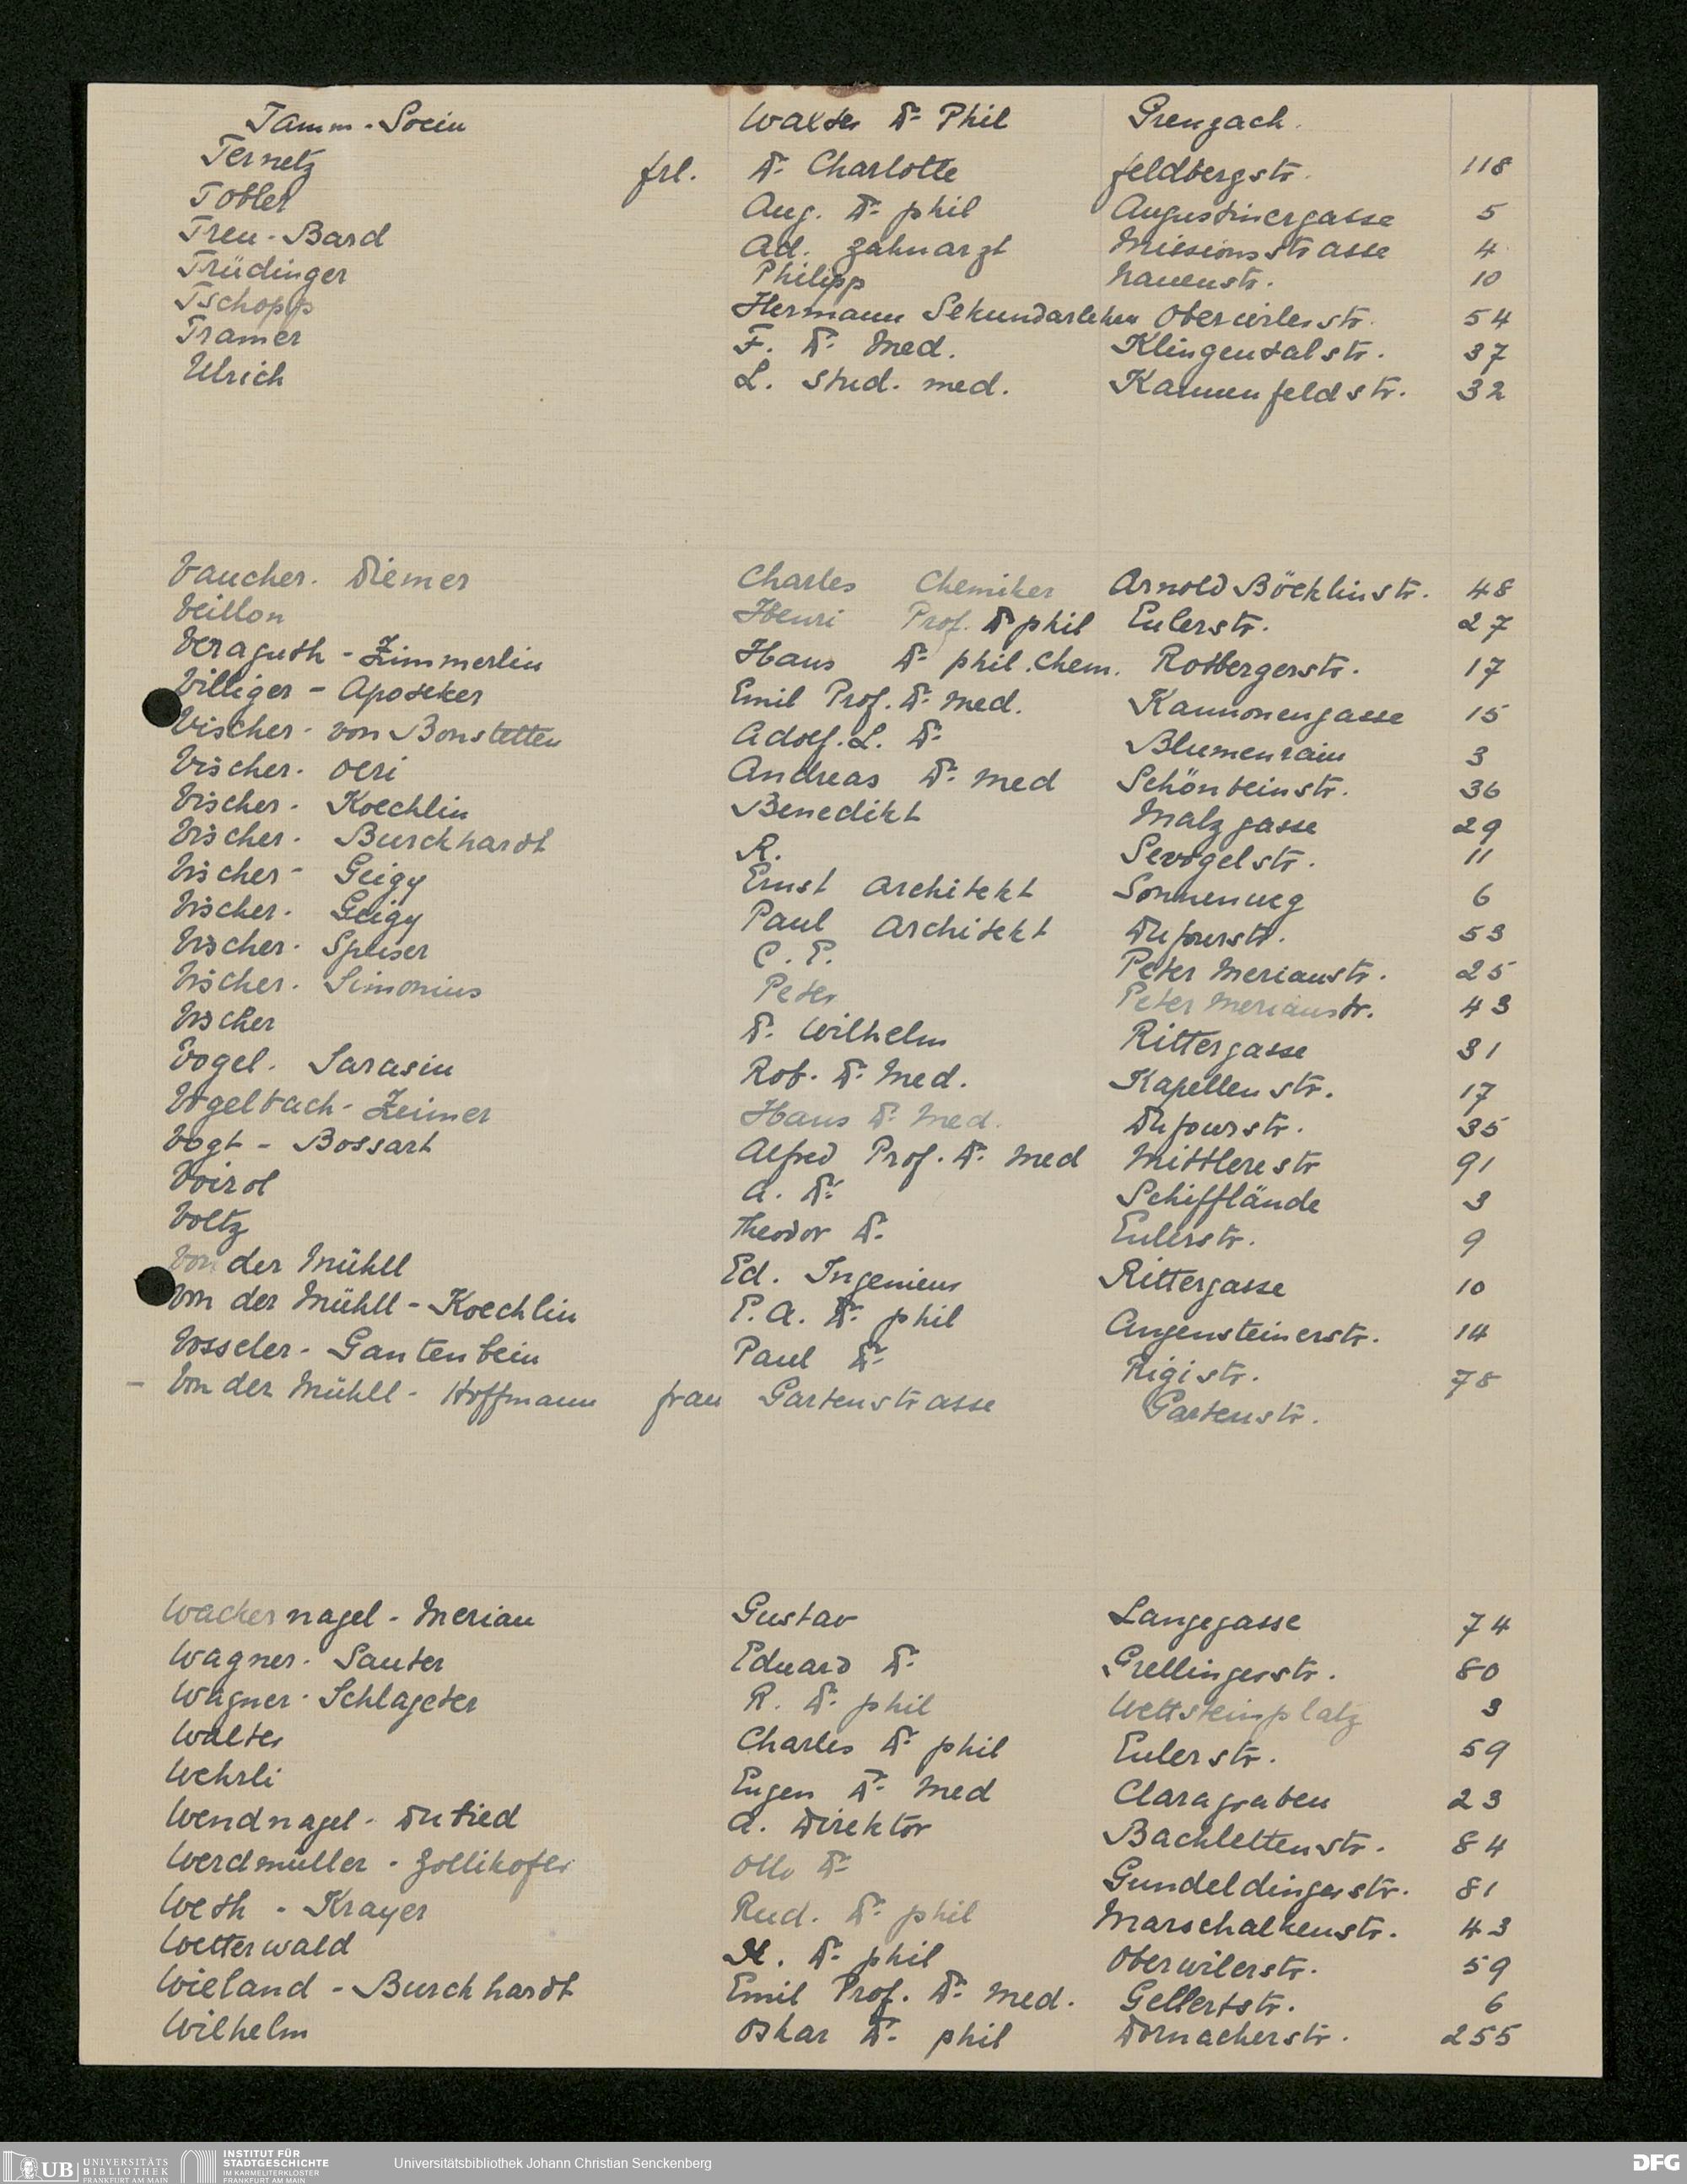 Tamm-Socin Walter Dr. Phil Grenzach.
Ternetz Frl. Dr. Charlotte Feldbergstr. 118
Tobler Aug. Dr. phil Augustinergasse 5
Treu-Bard Ad. Zahnarzt Missionsstrasse 4
Trüdinger Philipp Nauenstr. 10
Tschopp Hermann Sekundarlehrer Oberwilerstr. 54
Tramer F. Dr. Med. Klingentalstr. 37
Ulrich L. Stud. med. Kannenfeldstr. 32
Vaucher. Diemer Charles Chemiker Arnold Böcklinstr. 48
Veillon Henri Prof. Dr phil Eulerstr. 27
Veraguth-Zimmerlin Hans Dr. phil. Chem. Rotbergerstr. 17
Villiger-Apoteker Emil Prof. Dr. Med. Kannonengasse 15
Vischer. von Bonstetten Adolf. L. Dr. Blumenrain 3
Vischer. Oeri Andreas Dr. Med Schönbeinstr. 36
Vischer. Koechlin Benedikt Malzgasse 29
Vischer. Burckhardt R. Sevogelstr. 11
Vischer- Geigy Ernst Architekt Sonnenweg 6
Vischer. Geigy Paul Architekt Dufourstr. 53
Vischer. Speiser C. E. Peter Merianstr. 25
Vischer. Simonius Peter Peter Merianstr. 43
Vischer Dr. Wilhelm Rittergasse 31
Vogel. Sarasin Rob. Dr. Med. Kapellenstr. 17
Vögelbach-Zeimer Hans Dr. Med. Dufourstr. 35
Vogt-Bossart Alfred Prof. Dr. Med Mittlerestr 91
Voirol A. Dr. Schifflände 3
Voltz Theodor Dr. Eulerstr. 9
Von der Mühll Ed. Ingenieur Rittergasse 10
Von der Mühll-Koechlin P. A. Dr. phil Angensteinerstr. 14
Vosseler-Gantenbein Paul Dr. Rigistr. 78
- Von der Mühll-Hoffmann Frau Gartenstrasse Gartenstr.
Wackernagel-Merian Gustav Langegasse 74
Wagner-Sauter Eduard Dr. Grellingerstr. 80
Wagner-Schlageter R. Dr. phil Wettsteinplatz 3
Walter Charles Dr. phil Eulerstr. 59
Wehrli Eugen Dr. Med Claragraben 23
Wendnagel-Dubied A. Direktor Bachlettenstr. 84
Werdmüller-Zollikofer Otto Dr. Gundeldingerstr. 81
Weth-Krayer Rud. Dr. phil Marschalkenstr. 43
Wetterwald X. Dr. phil Oberwilerstr. 59
Wieland-Burckhardt Emil Prof. Dr. Med. Gellertstr. 6
Wilhelm Oskar Dr. phil Dornacherstr. 255
UB UNIVERSITÄTS BIBLIOTHEK FRANKFURT AM MAIN
INSTITUT FÜR STADTGESCHICHTE IM KARMELITERKLOSTER FRANKFURT AM MAIN
Universitätsbibliothek Johann Christian Senckenberg
DFG